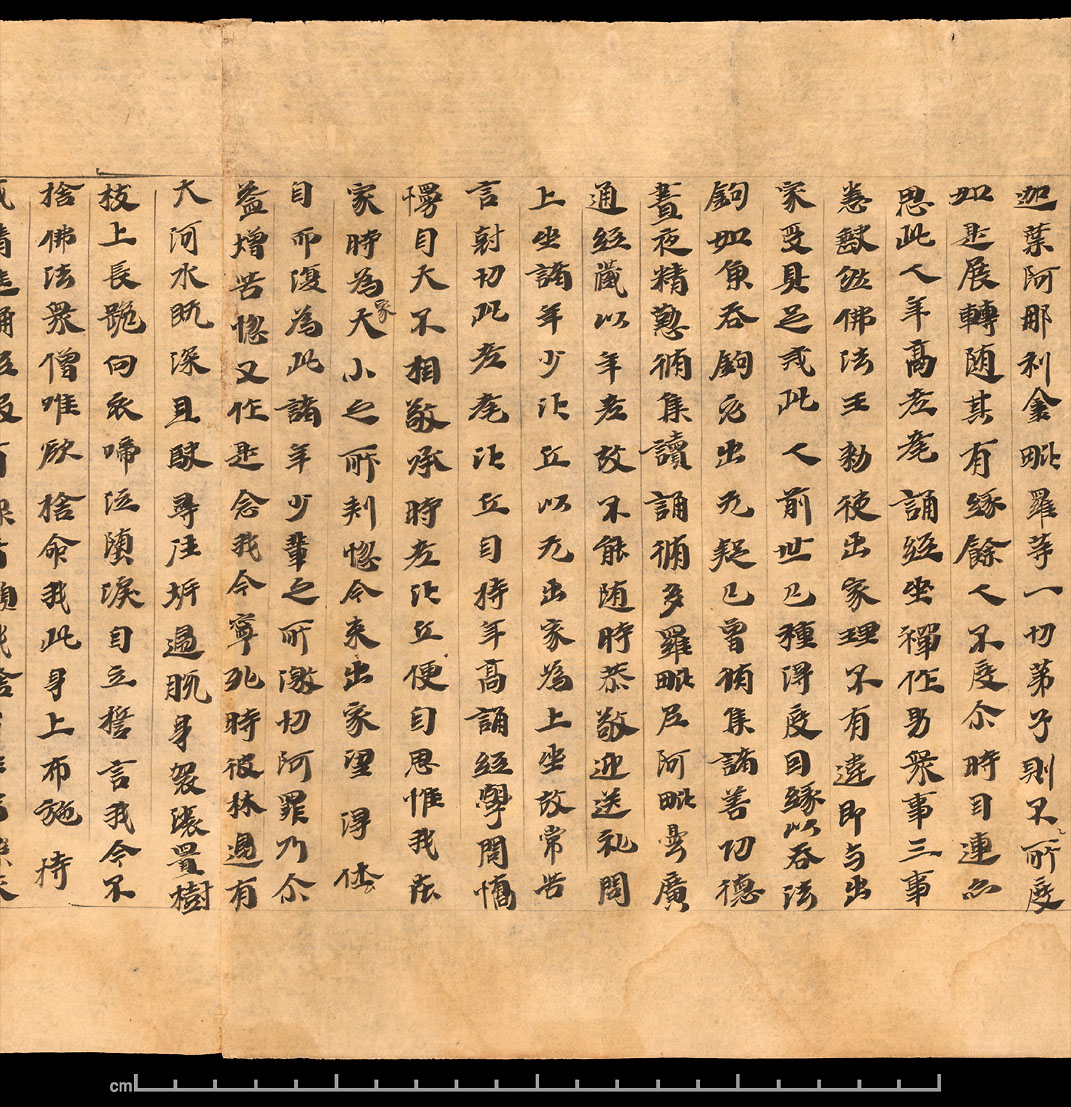 迦葉阿那利金毗羅等一切弟子則不所度
如是展轉随其有緣餘人不度尒時目連亦
思此人年高老耄誦經坐禪作勞衆事三事
悉懃然佛法王勑使出家理不有違即与出
家受具足戒此人前世已種得度因緣以吞法
鉤如魚吞鉤必出无疑已曾脩集諸善功德
晝夜精懃脩集讀誦脩多羅毗尼阿毗曇廣
通經藏以年老故不能随時恭敬迎送礼問
上坐諸年少比丘以先出家為上坐故常苦
言尅切此老耄比丘自恃年高誦經學問憍
慢自大不相敬承時老比丘便自思惟我在
家時為家大小之所刺惱今來出家望得休
自而復為此諸年少輩之所激切何罪乃尒
益增苦惱又作是念我今寧死時彼林邊有
大河水既深且駛尋往垿邊脫身袈裟置樹
枝上長跪向衣啼泣墮淚自立誓言我今不
捨佛法衆僧唯欲捨命我此身上布施持